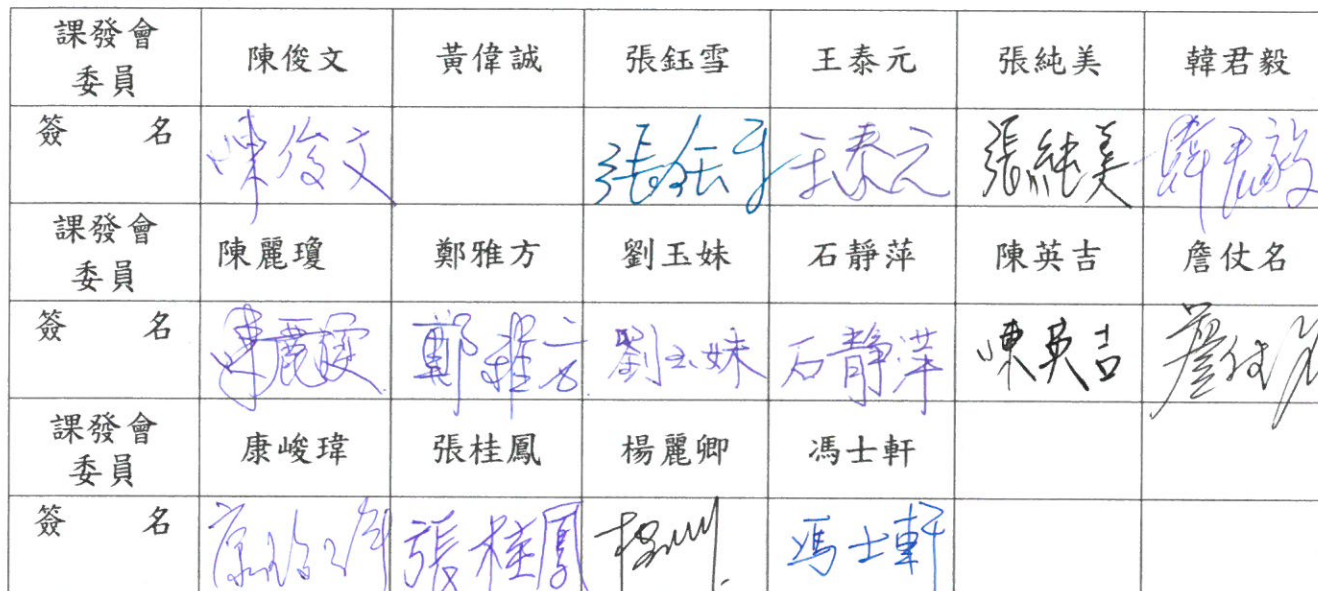 課發會委員 陳俊文 黃偉誠 張鈺雪 王泰元 張純美 韓君毅
簽名 陳俊文 張鈺雪 王泰元 張純美 韓君毅
課發會委員 陳麗瓊 鄭雅方 劉玉妹 石靜萍 陳英吉 詹仗名
簽名 陳麗瓊 鄭雅方 劉玉妹 石靜萍 陳英吉 詹仗名
課發會委員 康峻瑋 張桂鳳 楊麗卿 馮士軒
簽名 康峻瑋 張桂鳳 馮士軒